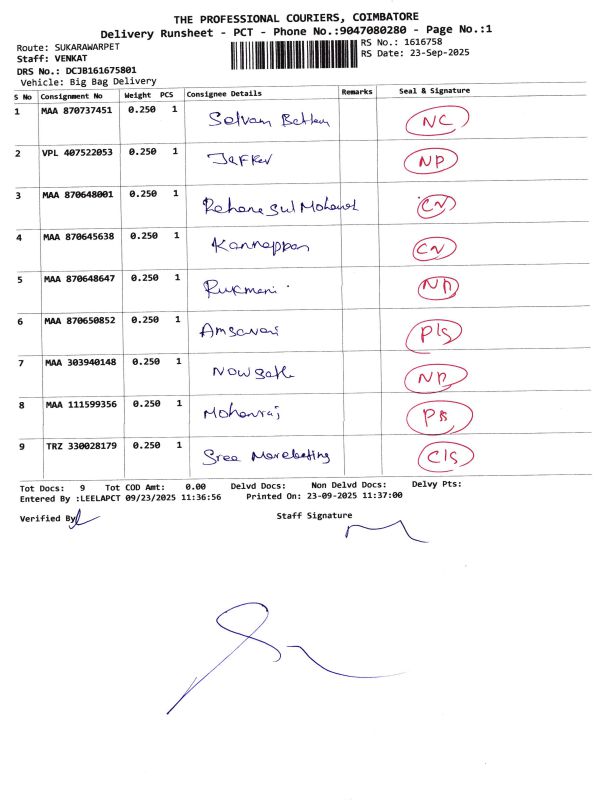 THE PROFESSIONAL COURIERS, COIMBATORE
Delivery Runsheet - PCT - Phone No.:9047080280 - Page No.:1
Route: SUKARAWARPET
RS No.: 1616758
Staff: VENKAT
RS Date: 23-Sep-2025
DRS No.: DCJB161675801
Vehicle: Big Bag Delivery
S No Consignment No Weight PCS Consignee Details Remarks Seal & Signature
1 MAA 870737451 0.250 1 Selvam NC
2 VPL 407522053 0.250 1 Jaffer NP
3 MAA 870648001 0.250 1 CN
4 MAA 870645638 0.250 1 Kannappan CN
5 MAA 870648647 0.250 1 Rukmani
6 MAA 870650852 0.250 1 Amsavani
7 MAA 303940148 0.250 1
8 MAA 111599356 0.250 1 Mohanraj
9 TRZ 330028179 0.250 1 Sree Marebeting
Tot Docs: 9 Tot COD Amt: 0.00 Delvd Docs: Non Delvd Docs: Delvy Pts:
Entered By :LEELAPCT 09/23/2025 11:36:56 Printed On: 23-09-2025 11:37:00
Verified By
Staff Signature